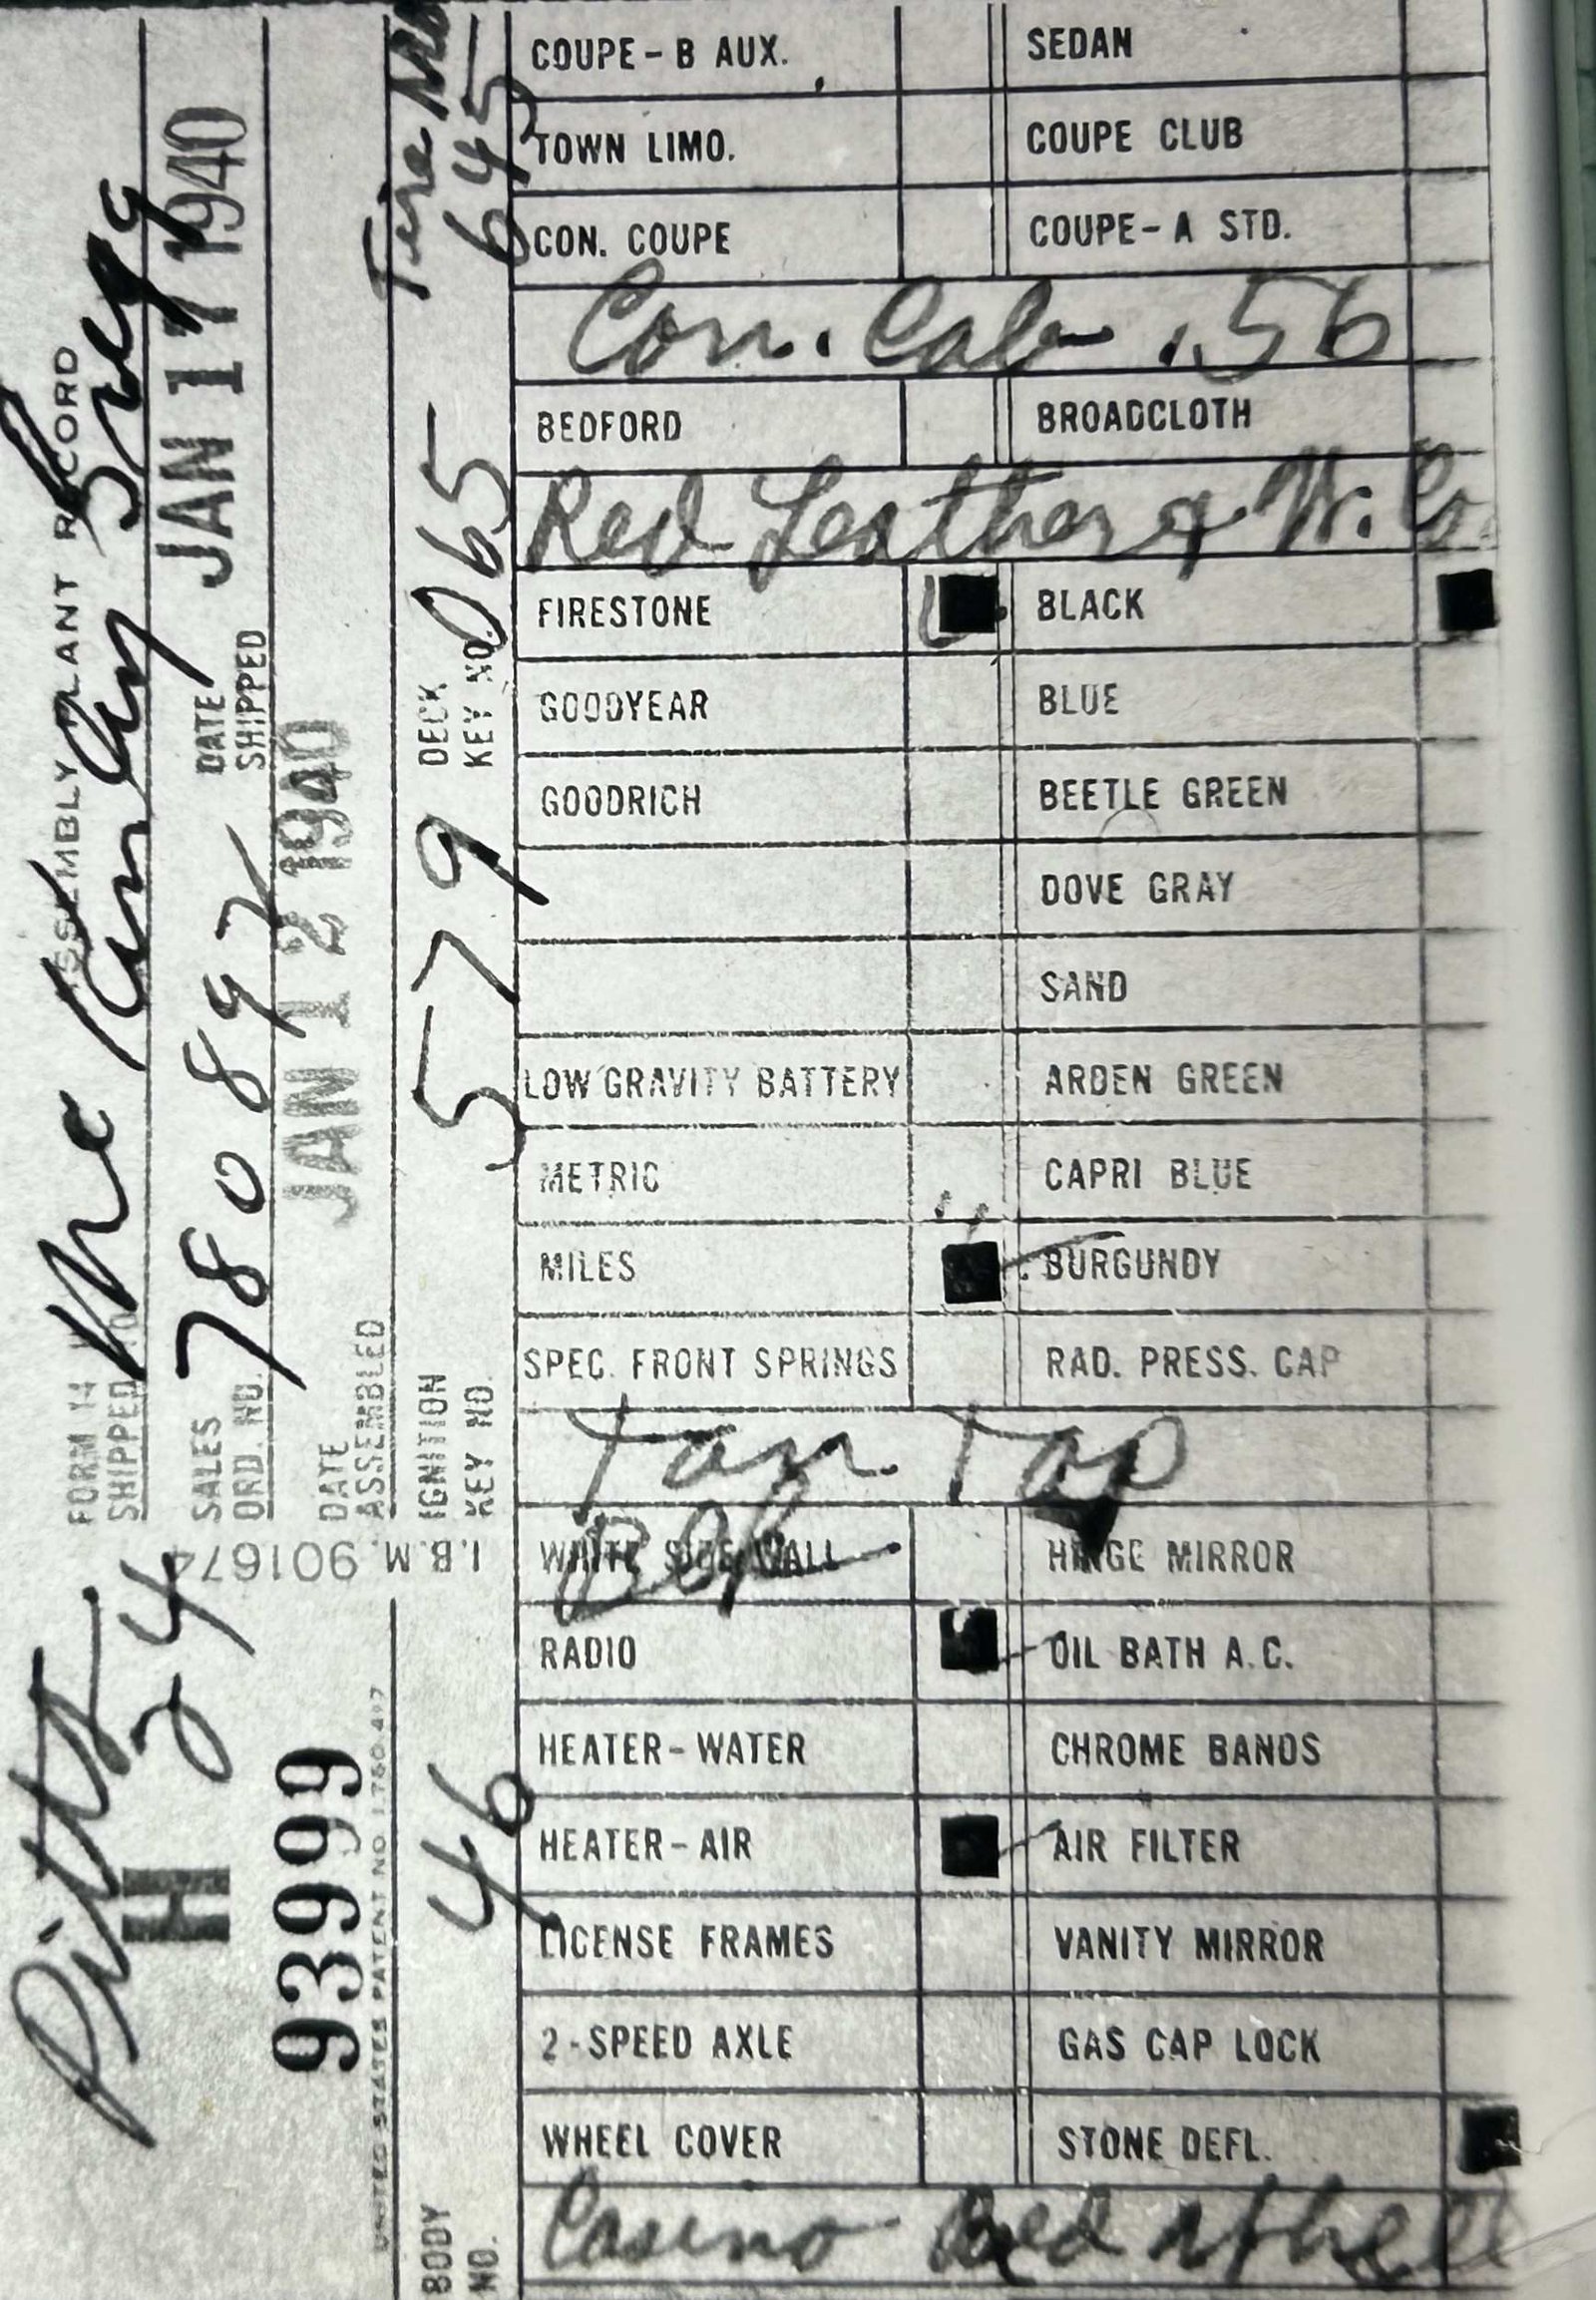 ASSEMBLY PLANT RECORD
FORM 14
SHIPPED TO
SALES ORD. NO. 780897
DATE SHIPPED JAN 17 1940
DATE ASSEMBLED JAN 12 1940
IGNITION KEY NO. 579
DECK KEY NO. 065
Tire
645
I.B.M. 901674
Pitts
H 24
93999
UNITED STATES PATENT NO. 1,780,497
BODY NO. 46
COUPE - B AUX. SEDAN
TOWN LIMO. COUPE CLUB
CON. COUPE COUPE - A STD.
Con. Cab .56
BEDFORD BROADCLOTH
Red Leather & W.
FIRESTONE BLACK
GOODYEAR BLUE
GOODRICH BEETLE GREEN
DOVE GRAY
SAND
LOW GRAVITY BATTERY ARDEN GREEN
METRIC CAPRI BLUE
MILES BURGUNDY
SPEC. FRONT SPRINGS RAD. PRESS. CAP
Tan Top
WHITE SIDE WALL HINGE MIRROR
RADIO OIL BATH A.C.
HEATER - WATER CHROME BANDS
HEATER - AIR AIR FILTER
LICENSE FRAMES VANITY MIRROR
2 - SPEED AXLE GAS CAP LOCK
WHEEL COVER STONE DEFL.
Casino Red Whee